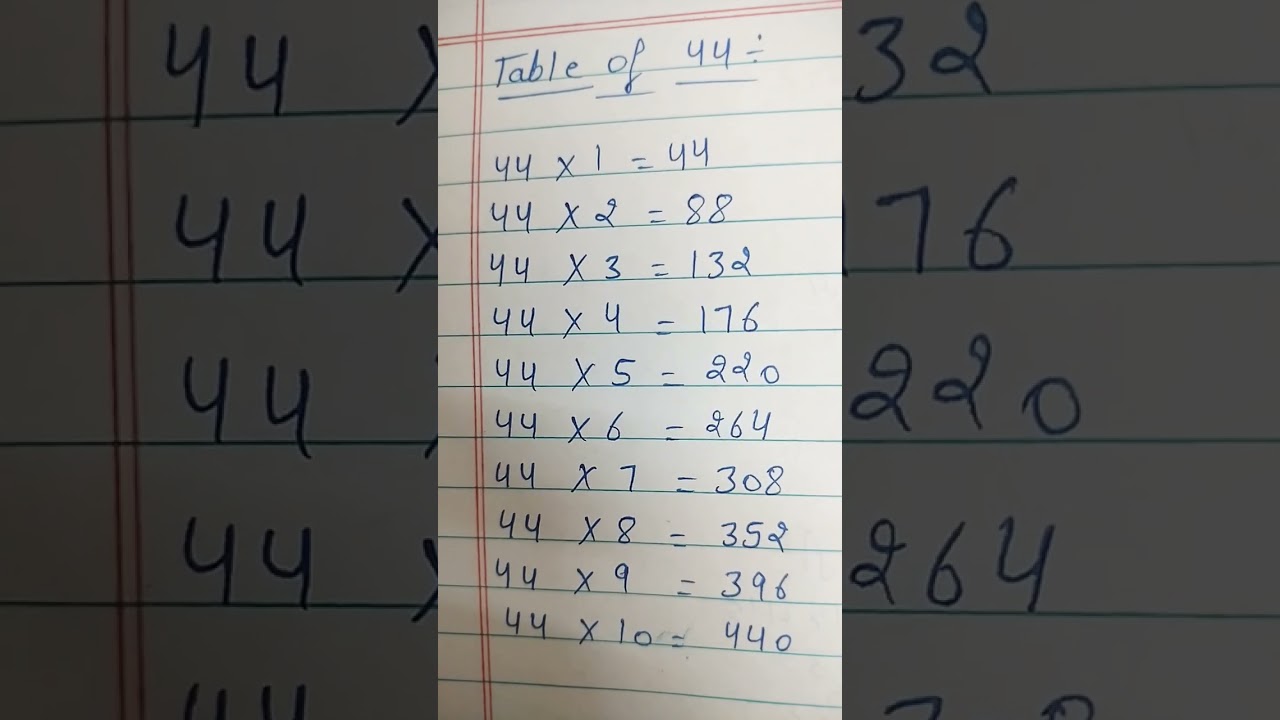 Table of 44 ÷
44 X 1 = 44
44 X 2 = 88
44 X 3 = 132
44 X 4 = 176
44 X 5 = 220
44 X 6 = 264
44 X 7 = 308
44 X 8 = 352
44 X 9 = 396
44 X 10 = 440